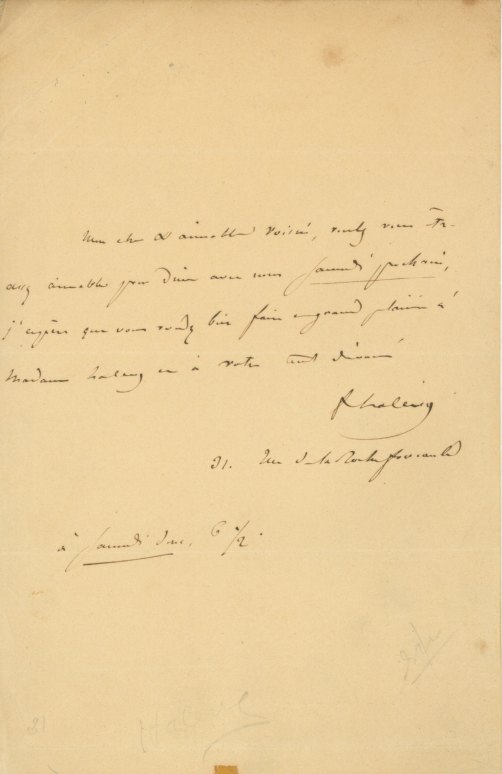 Mon cher & aimable voisin, voulez vous être
assez aimable pour diner avec nous samedi prochain,
j'espère que vous voudrez bien faire ce grand plaisir à
Madame halevy et à votre tout dévoué
f halevy
31. Rue de la Rochefoucauld
à samedi donc, 6 1/2.